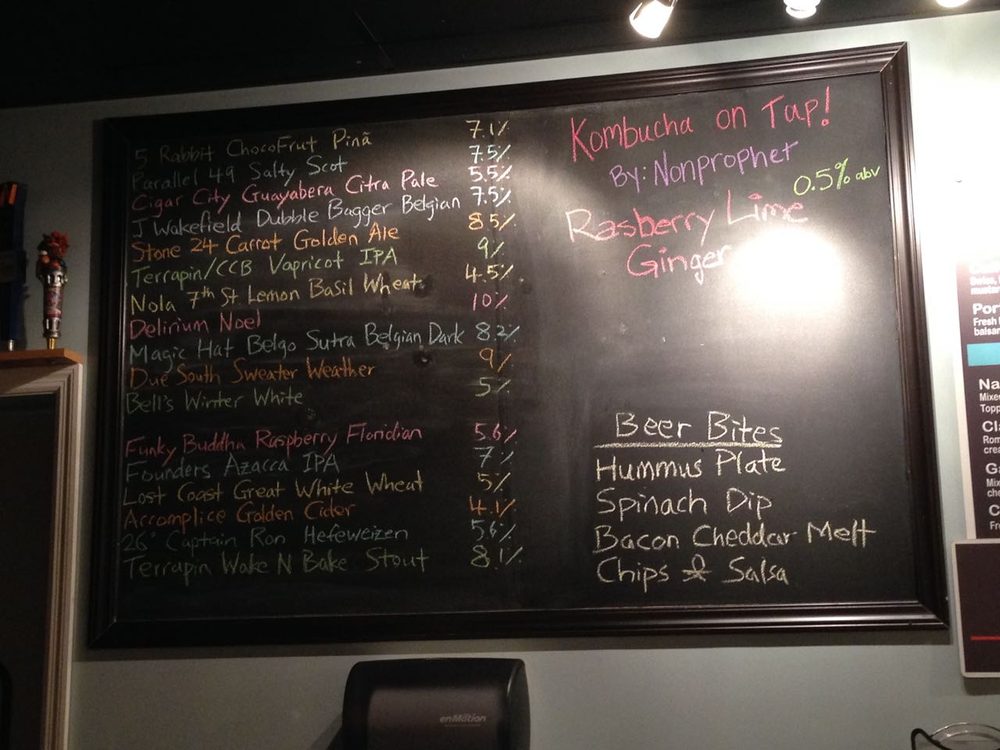 5 Rabbit ChocoFrut Pinã 7.1%
Parallel 49 Salty Scot 7.5%
Cigar City Guayabera Citra Pale 5.5%
J Wakefield Dubble Bagger Belgian 7.5%
Stone 24 Carrot Golden Ale 8.5%
Terrapin/CCB Vapricot IPA 9%
Nola 7th St Lemon Basil Wheat 4.5%
Delirium Noel 10%
Magic Hat Belgo Sutra Belgian Dark 8.2%
Due South Sweater Weather 9%
Bell's Winter White 5%
Funky Buddha Raspberry Floridian 5.6%
Founders Azacca IPA 7%
Lost Coast Great White Wheat 5%
Accomplice Golden Cider 4.1%
26° Captain Ron Hefeweizen 5.6%
Terrapin Wake N Bake Stout 8.1%
Kombucha on Tap!
By: Nonprophet
0.5% abv
Rasberry Lime
Ginger
Beer Bites
Hummus Plate
Spinach Dip
Bacon Cheddar Melt
Chips & Salsa
enMotion
Por
Fresh
balsa
Na
Mixe
Topp
Cla
Rom
crea
Mix
che
C
Fr